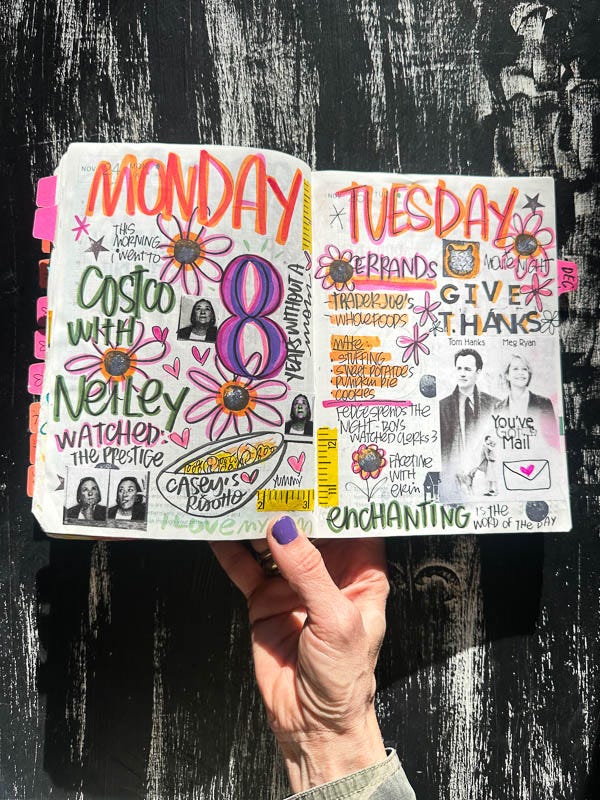 NOV 24
MONDAY
THIS
MORNING
I WENT TO
COSTCO
WITH
NELLEY
8
YEARS WITHOUT A
WATCHED:
THE PRESTIGE
CASEY'S
RISOTTO
YUMMY
2 3
I love my
NOV
TUESDAY
ERRANDS
TRADER JOE'S
WHOLEFOODS
MAKE:
STUFFING
SWEET POTATOES
PUMPKIN PIE
COOKIES
FEDGE SPENDS THE
NIGHT - BOYS
WATCHED CLERKS 3
FACETIME
WITH
ERIN
12
MOVIE NIGHT
GIVE
THANKS
Tom Hanks Meg Ryan
You've
Got
Mail
ENCHANTING IS THE
WORD OF THE DAY
DEC